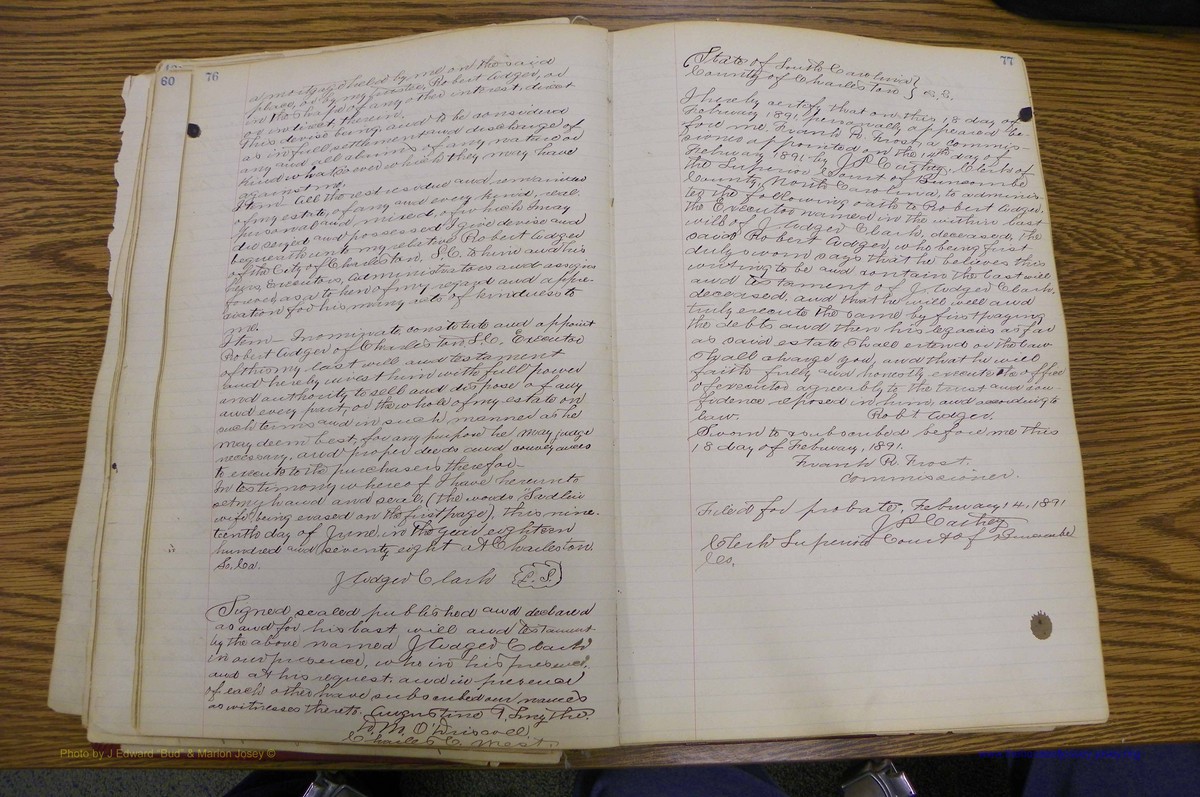 60
76
a mortgage held by me on the said
place, or by my trustee, Robert Adger, or
in the shape of any other interest, direct
or indirect therein.
This devise being and to be considered
as in full settlement and discharge of
any and all claims of any nature or
kind whatsoever which they may have
against me.
Item - All the rest residue and remainder
of my estate, of any and every kind, real,
personal and mixed, of which I may
die seized and possessed I give devise and
bequeath unto my relative Robert Adger
of the City of Charleston, S.C. to him and his
heirs, Executors, administrators and assigns
forever, as a token of my regard and appre-
ciation for his many acts of kindness to
me.
Item - I nominate, constitute and appoint
Robert Adger of Charleston, S.C. Executor
of this my last will and testament
and hereby invest him with full power
and authority to sell and dispose of any
and every part, or the whole of my estate on
such terms and in such manner as he
may deem best, for any purpose he may judge
necessary, and proper deeds and conveyances
to execute to the purchasers therefor-
In testimony whereof I have hereunto
set my hand and seal, (the words
wife" being erased on the first page), this nine-
teenth day of June, in the year eighteen
hundred and seventy eight at Charleston.
So. Ca.
J Adger Clark (L.S.)
Signed, sealed, published and declared
as and for his last will and testament
by the above named J Adger Clark
in our presence, who in his presence,
and at his request and in presence
of each other have subscribed our names
as witnesses thereto. Augustine T. Smythe.
W. M. O'Driscoll,
Charles C. West.
77
State of South Carolina }
County of Charleston } S.S.
I hereby certify that on this 18 day of
February 1891 personally appeared be-
fore me Frank R. Frost, a commis-
sioner appointed on the 14th day of
February 1891 by J A Cathey, Clerk of
the Superior Court of Buncombe
County, North Carolina, to adminis-
ter the following oath to Robert Adger.
the Executor named in the within last
will of J Adger Clark, deceased, the
said Robert Adger, who being first
duly sworn says that he believes this
writing to be and contain the last will
and testament of J Adger Clark,
deceased, and that he will well and
truly execute the same by first paying
the debts and then his legacies as far
as said estate shall extend or the law
shall charge you, and that he will
faithfully and honestly execute the office
of executor agreeably to the trust and con-
fidence reposed in him, and according to
law. Robt Adger.
Sworn to & subscribed before me this
18 day of February, 1891
Frank R. Frost.
Commissioner.
Filed for probate, February 14, 1891
J A Cathey
Clerk Superior Court of Buncombe
Co.
Photo by J Edward "Bud" & Marion Josey ©